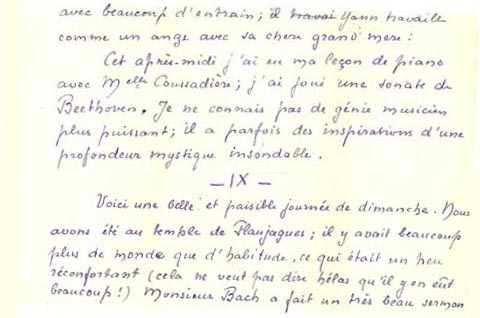 avec beaucoup d'entrain ; il travai Yann travaille
comme un ange avec sa chère grand' mère :
Cet après-midi j'ai eu ma leçon de piano
avec Melle Coussadière ; j'ai joué une sonate de
Beethoven. Je ne connais pas de génie musicien
plus puissant ; il a parfois des inspirations d'une
profondeur mystique insondable.
— IX —
Voici une belle et paisible journée de dimanche. Nous
avons été au temple de Flaujagues ; il y avait beaucoup
plus de monde que d'habitude, ce qui était un peu
réconfortant (cela ne veut pas dire hélas qu'il y en eût
beaucoup !) Monsieur Bach a fait un très beau sermon